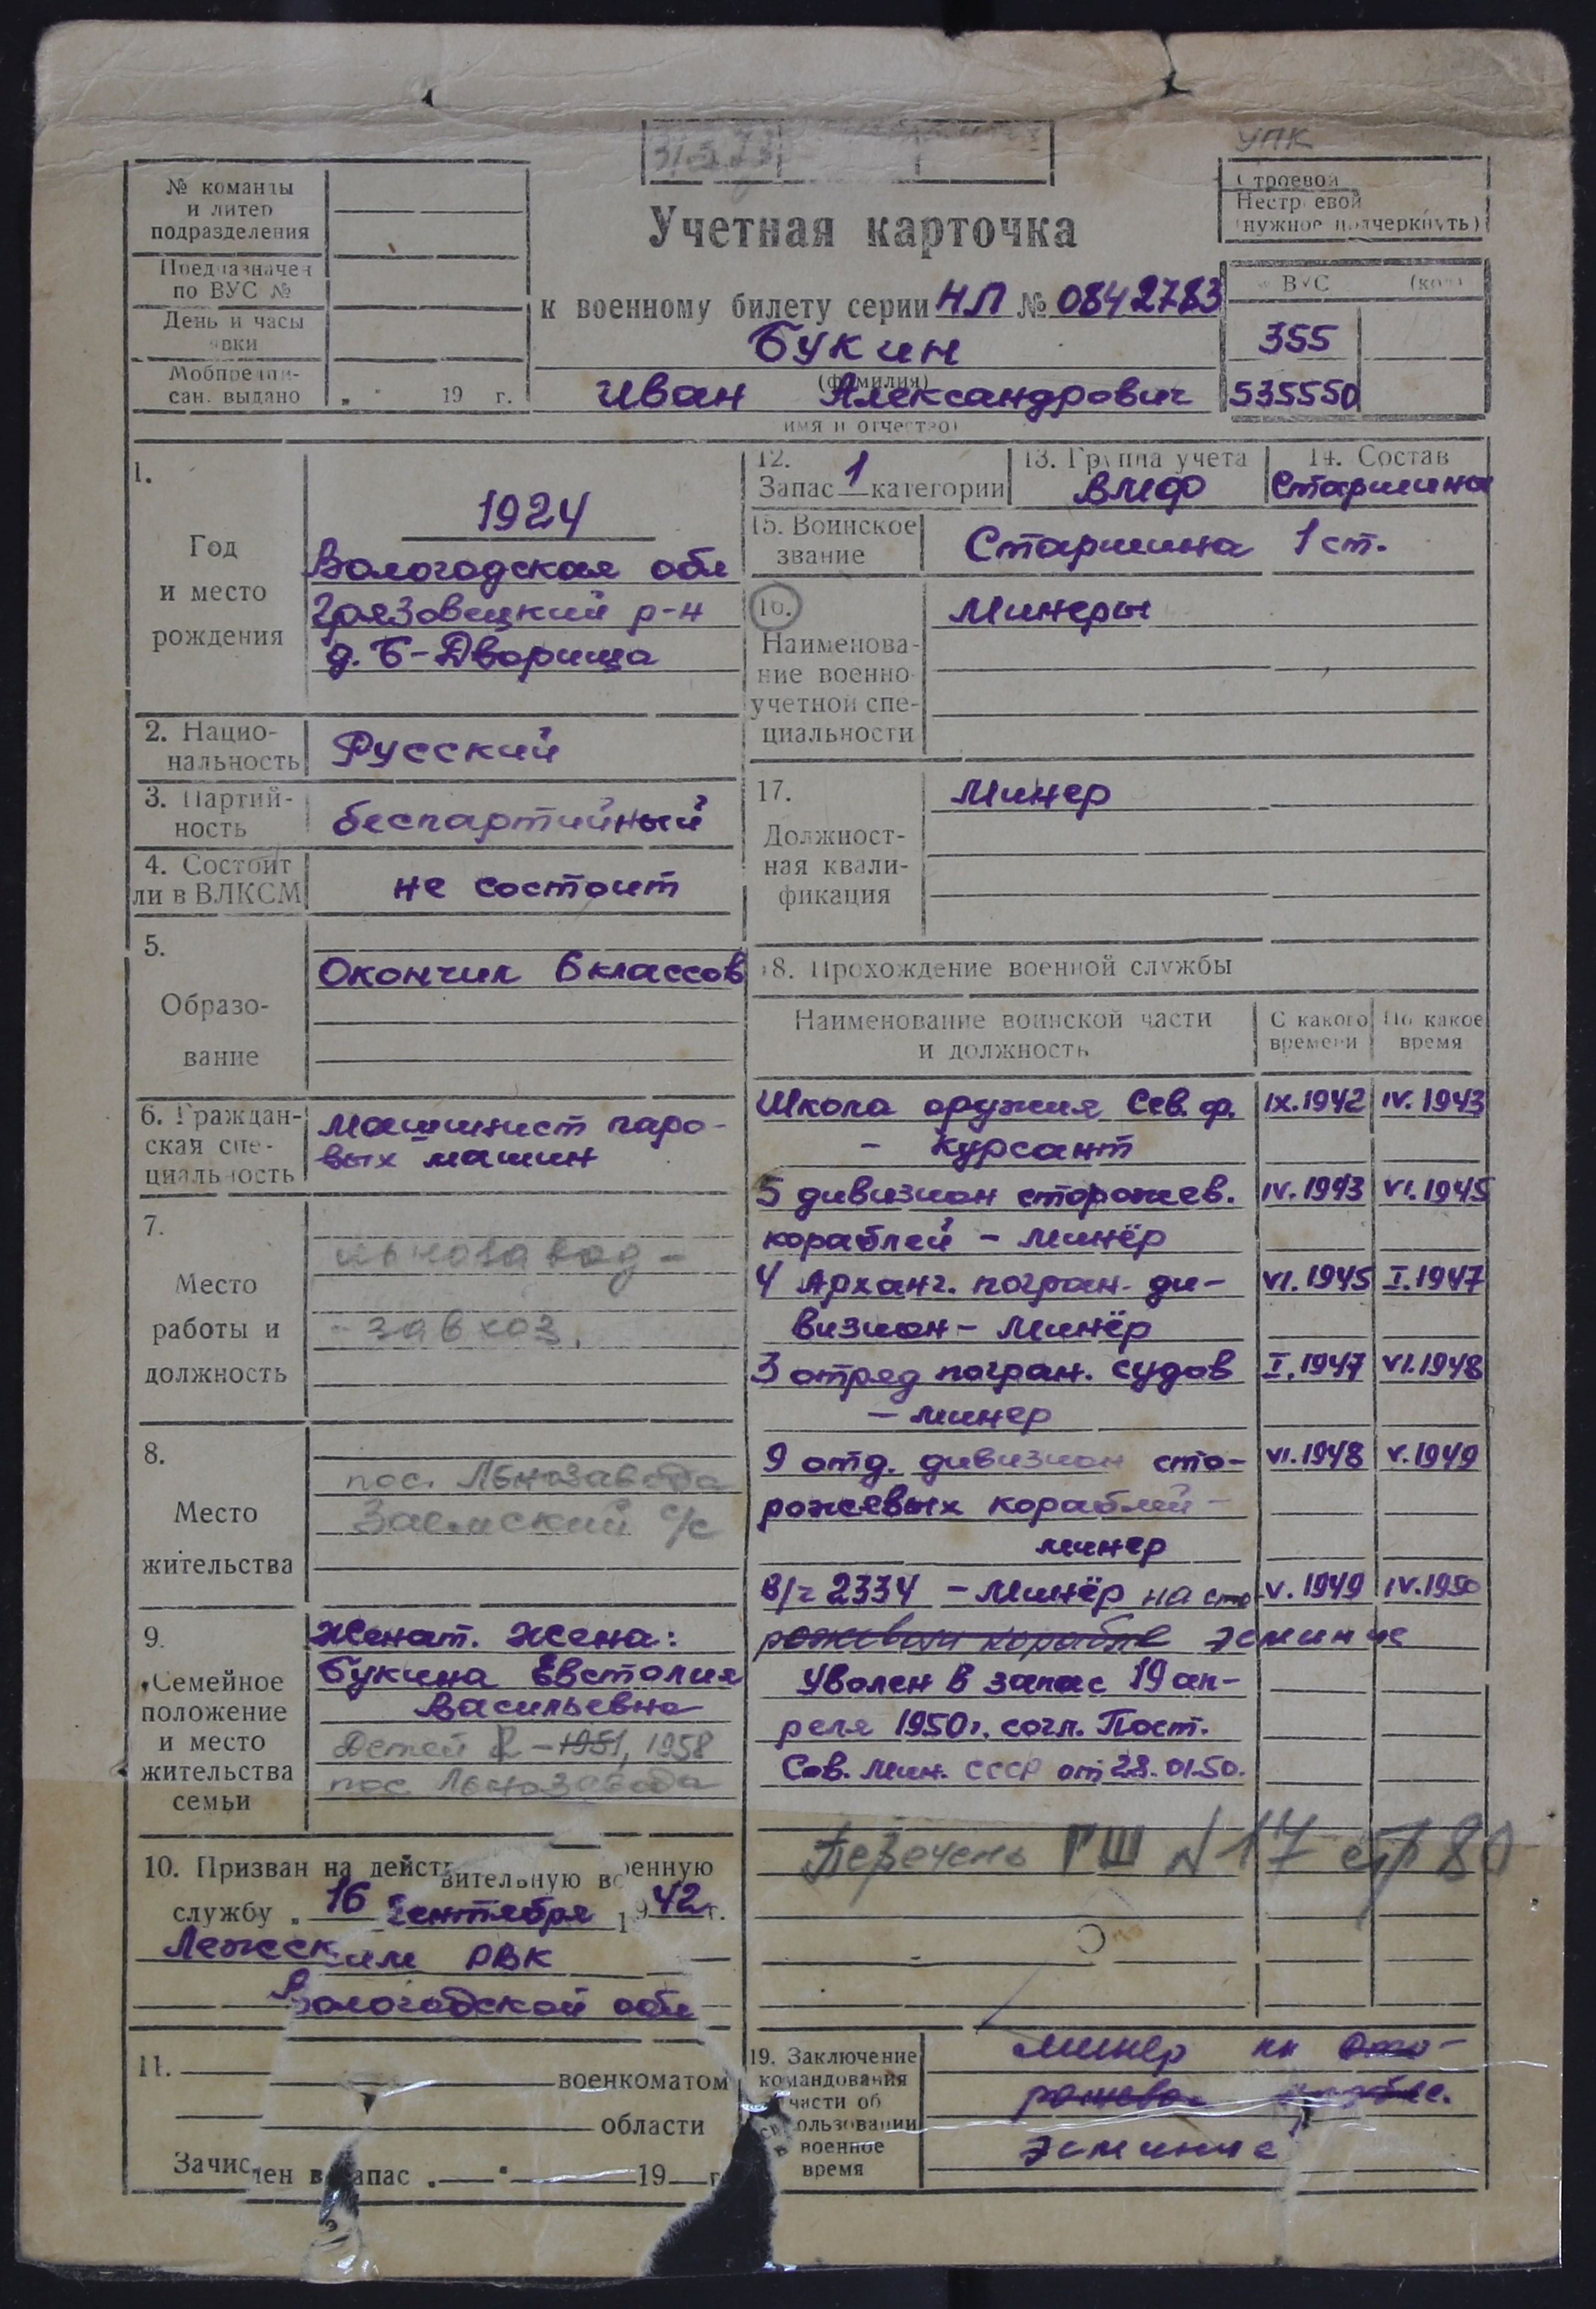 31.5.73
УПК
№ команды
и литер
подразделения
Предназначен
по ВУС №
День и часы
явки
Мобпредпи-
сан. выдано „ " 19 г.
Строевой
Нестроевой
(нужное подчеркнуть)
Учетная карточка
к военному билету серии НП № 0842783
Букин
(фамилия)
Иван Александрович
(имя и отчество)
ВУС (код)
355
535550
1.
Год
и место
рождения
1924
Вологодская обл
Грязовецкий р-н
д. Б-Дворища
2. Нацио-
нальность
Русский
3. Партий-
ность
беспартийный
4. Состоит
ли в ВЛКСМ
не состоит
5.
Образо-
вание
Окончил 6 классов
6. Граждан-
ская спе-
циальность
Машинист паро-
вых машин
7.
Место
работы и
должность
льнозавод -
- завхоз.
8.
Место
жительства
пос. Льнозавода
Заемский с/с
9.
Семейное
положение
и место
жительства
семьи
Женат. Жена:
Букина Евстолия
Васильевна
Детей 2 - 1951, 1958
пос Льнозавода
10. Призван на действительную военную
службу „ 16 Сентября 1942 г.
Лежским РВК
Вологодской обл
11. военкоматом
области
Зачислен в запас „ " 19 г
12.
Запас 1 категории
13. Группа учета
ВМФ
14. Состав
Старшина
15. Воинское
звание
Старшина 1 ст.
16.
Наименова-
ние военно
учетной спе-
циальности
Минеры
17.
Должност-
ная квали-
фикация
Минер
18. Прохождение военной службы
Наименование воинской части
и должность
С какого
времени
По какое
время
Школа оружия Сев. ф. IX.1942 IV.1943
- Курсант
5 дивизион сторожев. IV.1943 VI.1945
кораблей - минёр
4 Арханг. погран. ди- VI.1945 I.1947
визион - Минёр
3 отряд погран. судов I.1947 VI.1948
- минер
9 отд. дивизион сто- VI.1948 V.1949
рожевых кораблей -
минер
В/ч 2334 - Минёр на сто V.1949 IV.1950
рожевом корабле эсминце
Уволен в запас 19 ап-
реля 1950г. согл. Пост.
Сов. Мин. СССР от 28.01.50.
Перечень ГШ N 17 стр 80
19. Заключение
командования
части об
использовании
в военное
время
Минер на сто-
рожевом корабле.
эсминце